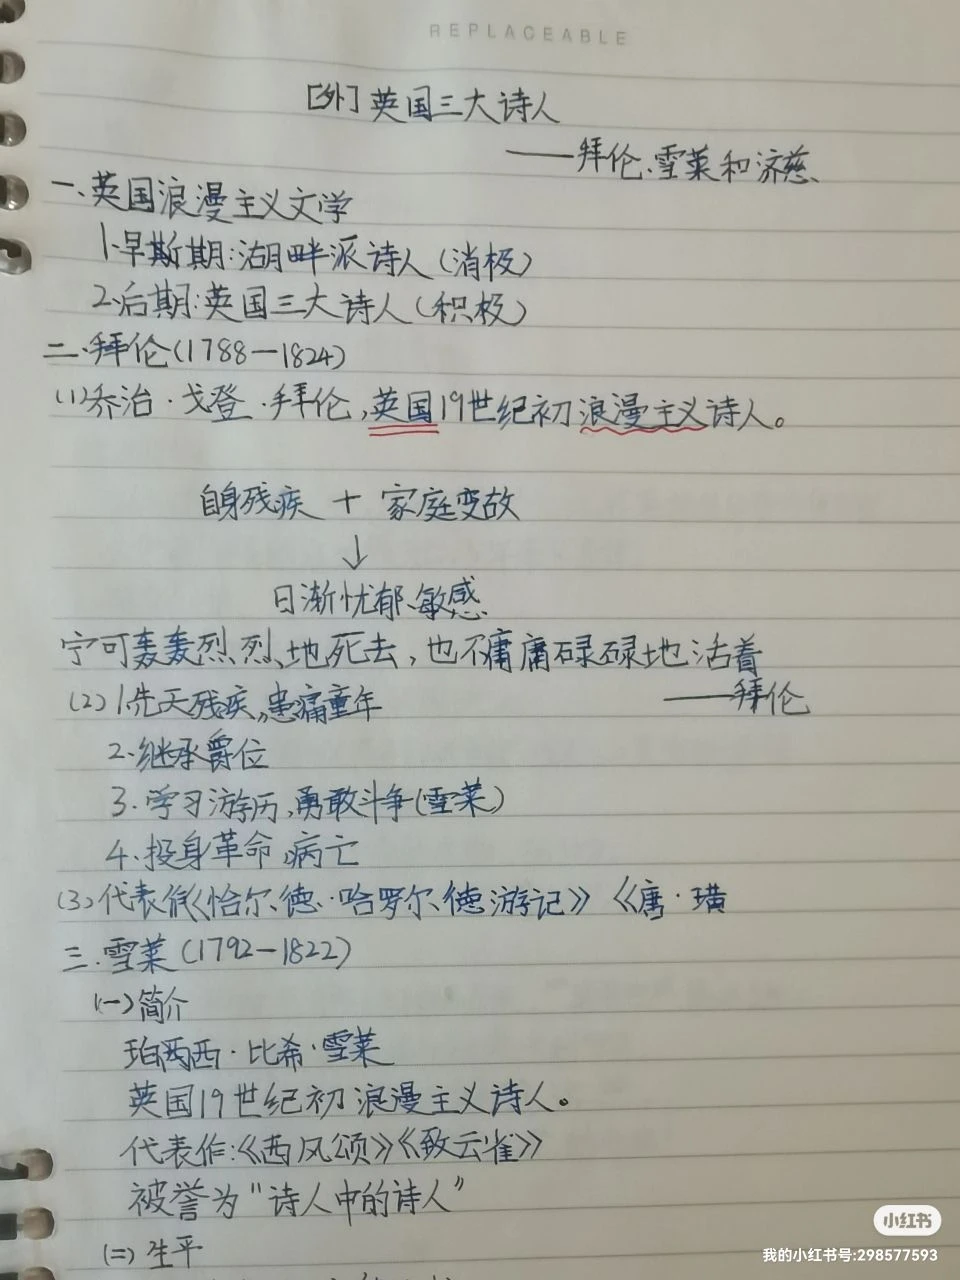 REPLACEABLE
[外] 英国三大诗人
——拜伦、雪莱和济慈、
一、英国浪漫主义文学
1.早斯期:湖畔派诗人(消极)
2.后期:英国三大诗人(积极)
二、拜伦(1788—1824)
(1)乔治·戈登·拜伦,英国19世纪初浪漫主义诗人。
自身残疾 + 家庭变故
↓
日渐忧郁、敏感
宁可轰轰烈烈地死去,也不庸庸碌碌地活着
——拜伦
(2)1.先天残疾,患痛童年
2.继承爵位
3.学习游历,勇敢斗争(雪莱)
4.投身革命,病亡
(3)代表作《恰尔德·哈罗尔德游记》《唐·璜
三.雪莱(1792—1822)
(一)简介
珀西西·比希·雪莱
英国19世纪初浪漫主义诗人。
代表作:《西风颂》《致云雀》
被誉为“诗人中的诗人”
(二)生平
小红书
我的小红书号:298577593